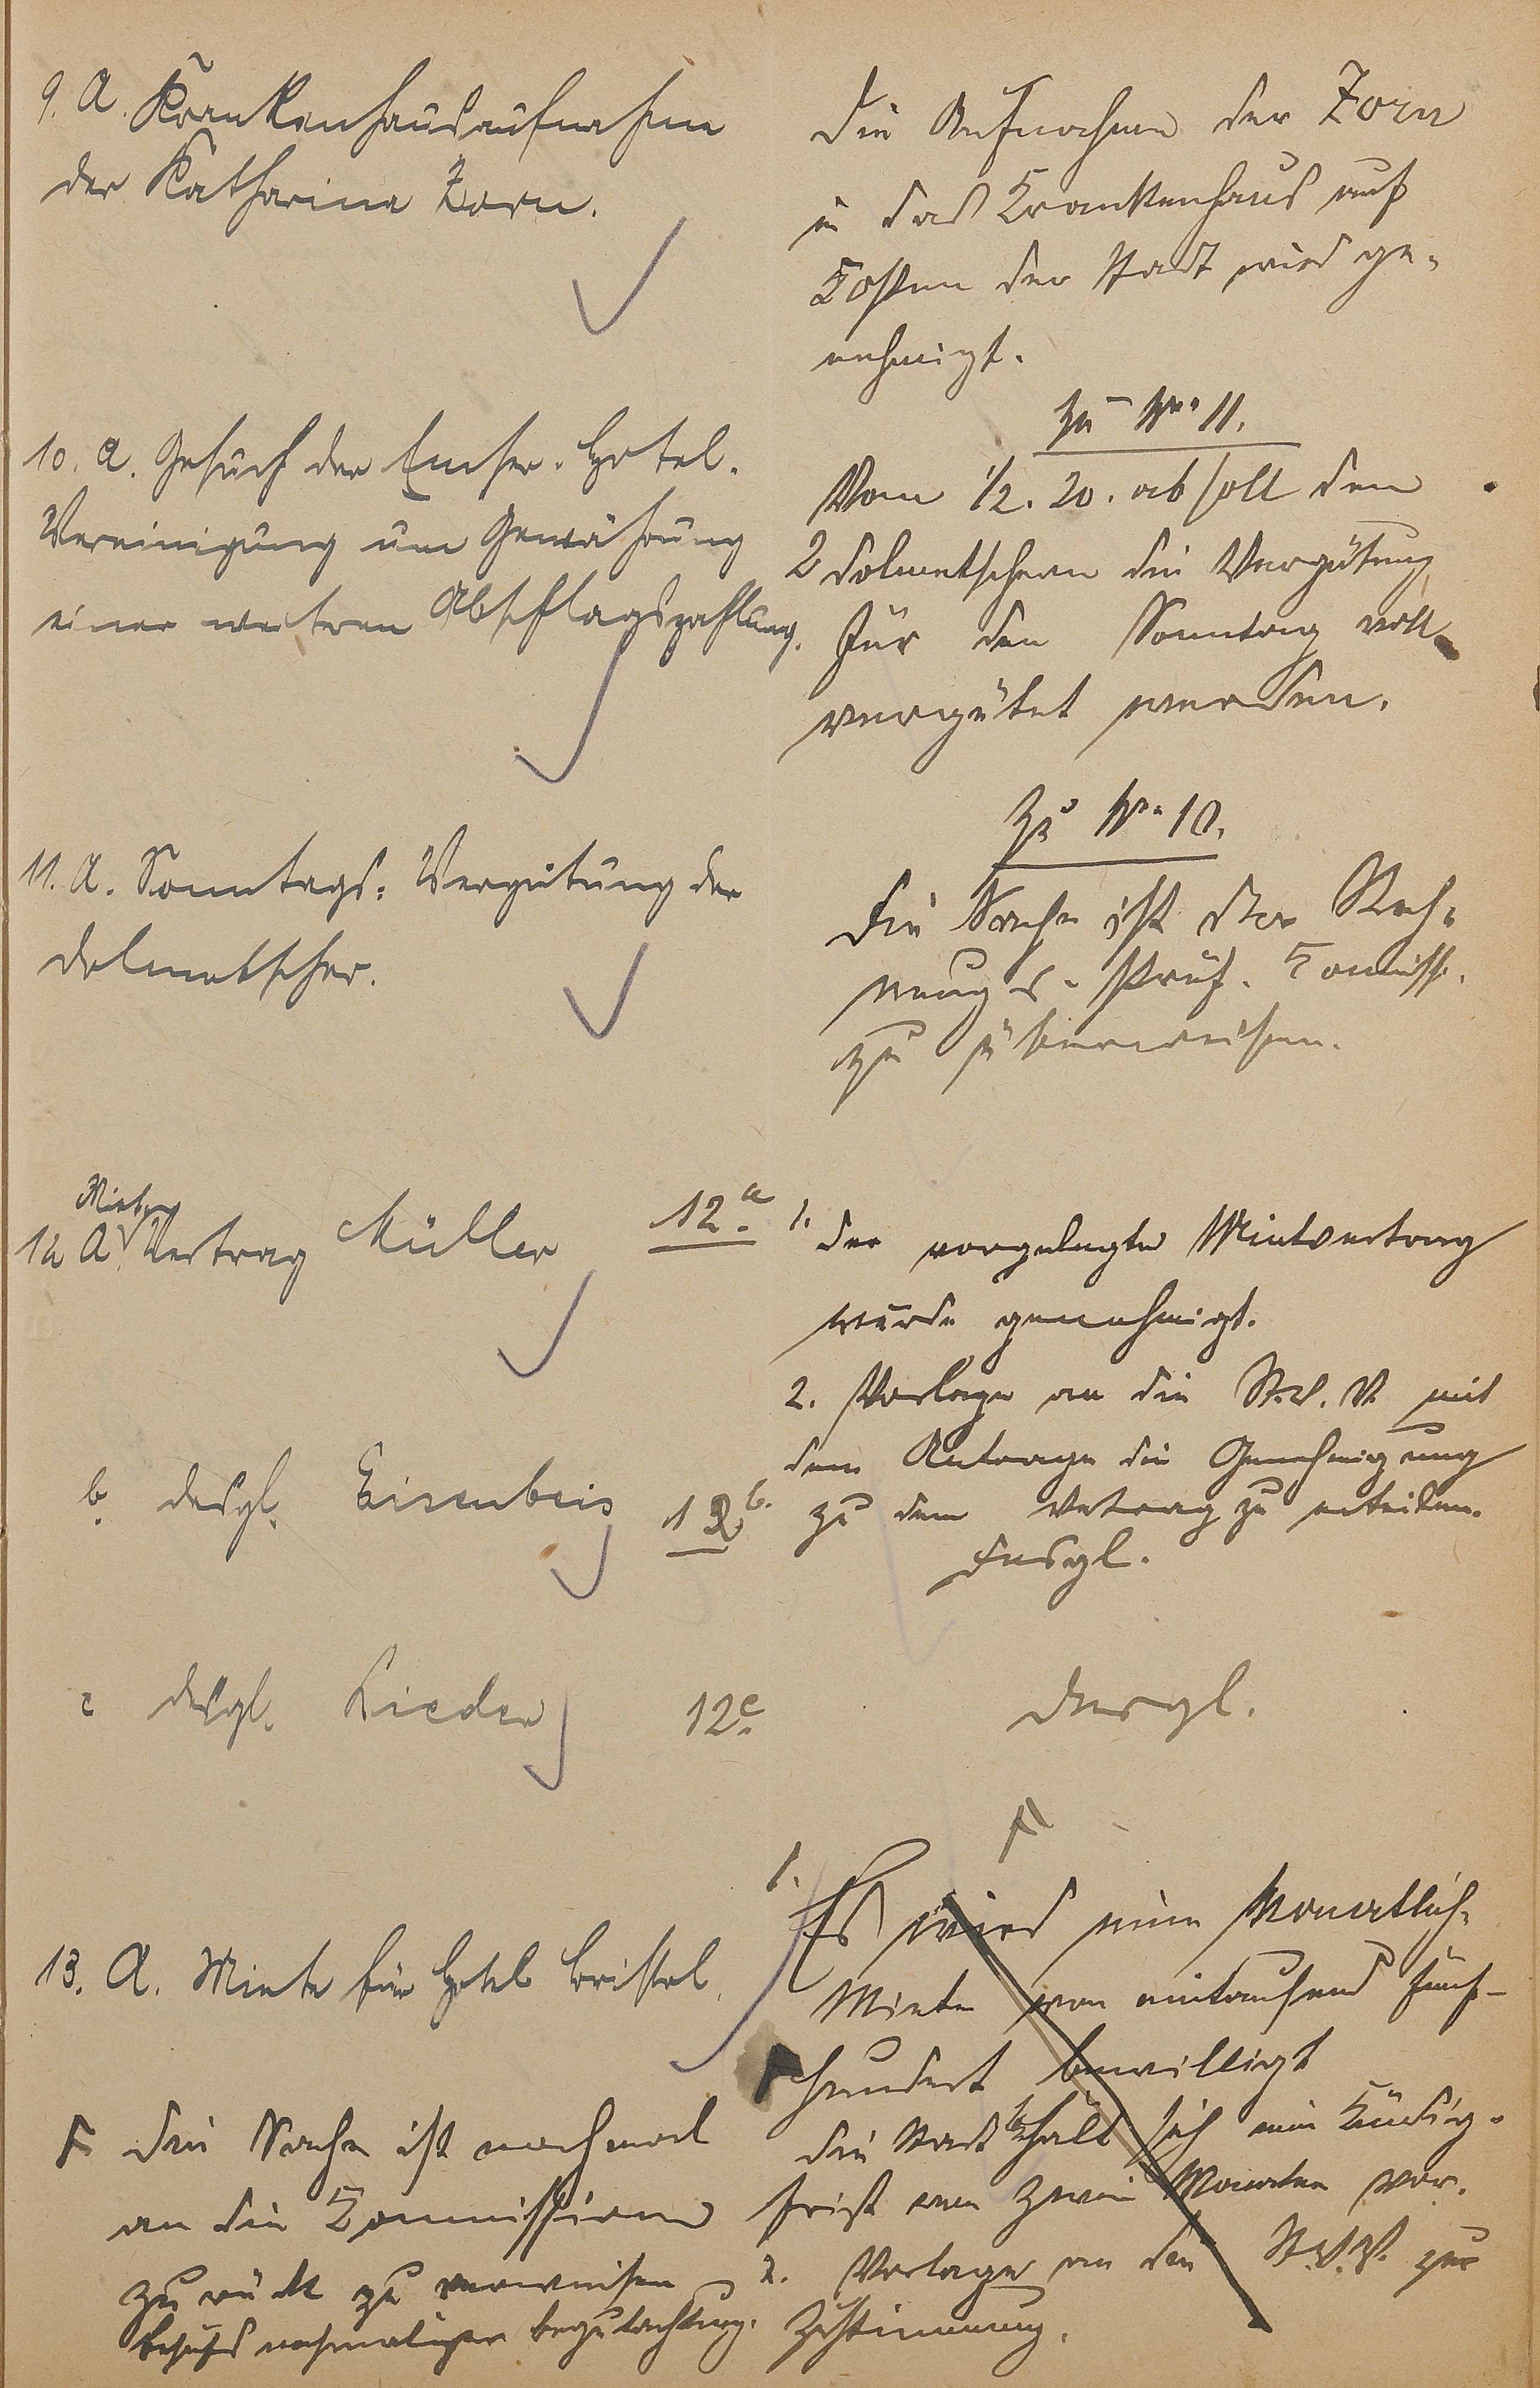 9. A. Krankenhausaufnahme
der Katharina Zorn.
Die Aufnahme der Zorn
in das Krankenhaus auf
Kosten der Stadt wird ge-
nehmigt.
10. A. Gesuch der Emser-Hotel-
Vereinigung um Gewährung
einer weitren Abschlagszahlung.
Zu No 11.
Vom 1/2. 20. ab soll den
2 Dolmetschern die Vergütung
für den Sonntag voll
vergütet werden.
11. A. Sonntags-Vergütung der
Dolmetscher.
Zu No 10.
Die Sache ist der Rech-
nungs-Prüf. Kommiss.
zu überweisen.
Miet
12 A. Vertrag Müller
12a 1. Der vorgelegte Mietvertrag
wurde genehmigt.
2. Vorlage an die St.V.V. mit
dem Antrage die Genehmigung
zu dem Vetrag zu erteilen.
b. desgl. Eisenbeis
12b. Desgl.
c desgl. Rieder
12c Desgl.
13. A. Miete für Hotel Bristol.
1. Es wird eine Monatlich-
Miete von eintausend fünf-
hundert bewilligt
die Stadt behält sich eine Kündig-
frist von zwei Monaten vor.
2. Vorlage an die St.V.V. zur
Zustimmung.
F Die Sache ist nochmal
an die Kommission
zurück zu verweisen
behufs nochmaliger Begutachtung.